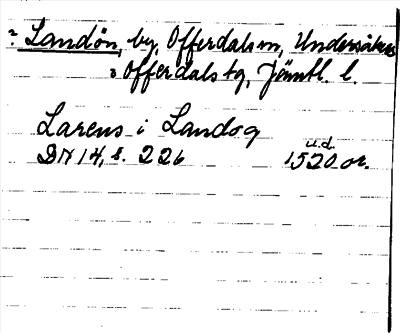 ? Landön, by, Offerdals sn, Undersåkers
o Offerdals tg, Jämtl. l.
Larens i Landog
u.d.
DN 14, s. 226 1520 or.